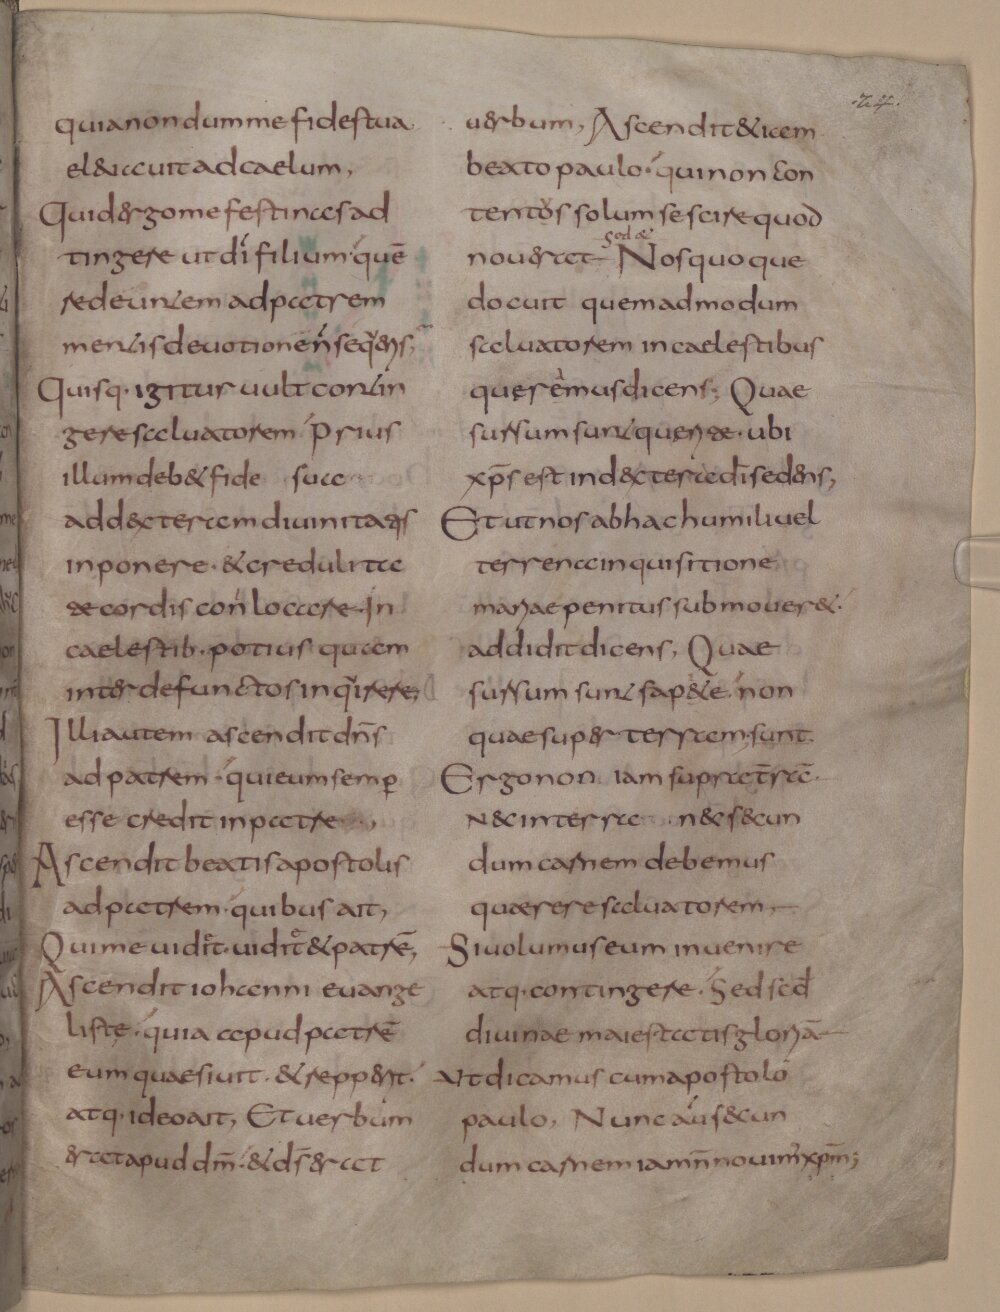 quia non dum me fides tua
el&auit ad caelum,
Quid ergo me festinas ad
tingere ut dī filium quē
redeuntem ad patrem
mentis deuotione ń seq̄ris,
Quisq· igitur uult contin
gere saluatorem Prius
illum deb& fide suae
ad dexteram diuinitatis
inponere· & credulita
te cordis conlocare· In
caelestib· potius quam
inter defunctos inq̄irere,
Illi autem ascendit dn̄s
ad patrem· qui eum semꝑ
esse credit in patre,
Ascendit beatis apostolis
ad patrem· quibus ait,
Qui me uidit· uidit & patrē,
Ascendit iohanni euange
listę· quia apud patrē
eum quaesiuit· & repperit·
atq· ideo ait, Et uerbum
erat apud dm̄· & ds̄ erat
uerbum, Ascendit & iam
beato paulo· qui non con
tentus solum se scire quod
sed &
nouerat Nos quoque
docuit quem ad modum
saluatorem in caelestibus
queremus dicens; Quae
sursum sunt querite· ubi
xp̄s est in dextera dī sedens,
Et ut nos ab hac humili uel
terrena inquisitione
mariae penitus submouer&·
addidit dicens, Quae
sursum sunt sapite· non
quae super terram sunt
Ergo non iam supra tr̄ā·
Nec in terra nec secun
dum carnem debemus
quaerere saluatorem,
Si uolumus eum inuenire
atq· contingere· Sed scd̄
diuinae maiestatis gloriā
Ut dicamus cum apostolo
paulo, Nunc aū secun
dum carnem iam n̄ nouim' xp̄m;